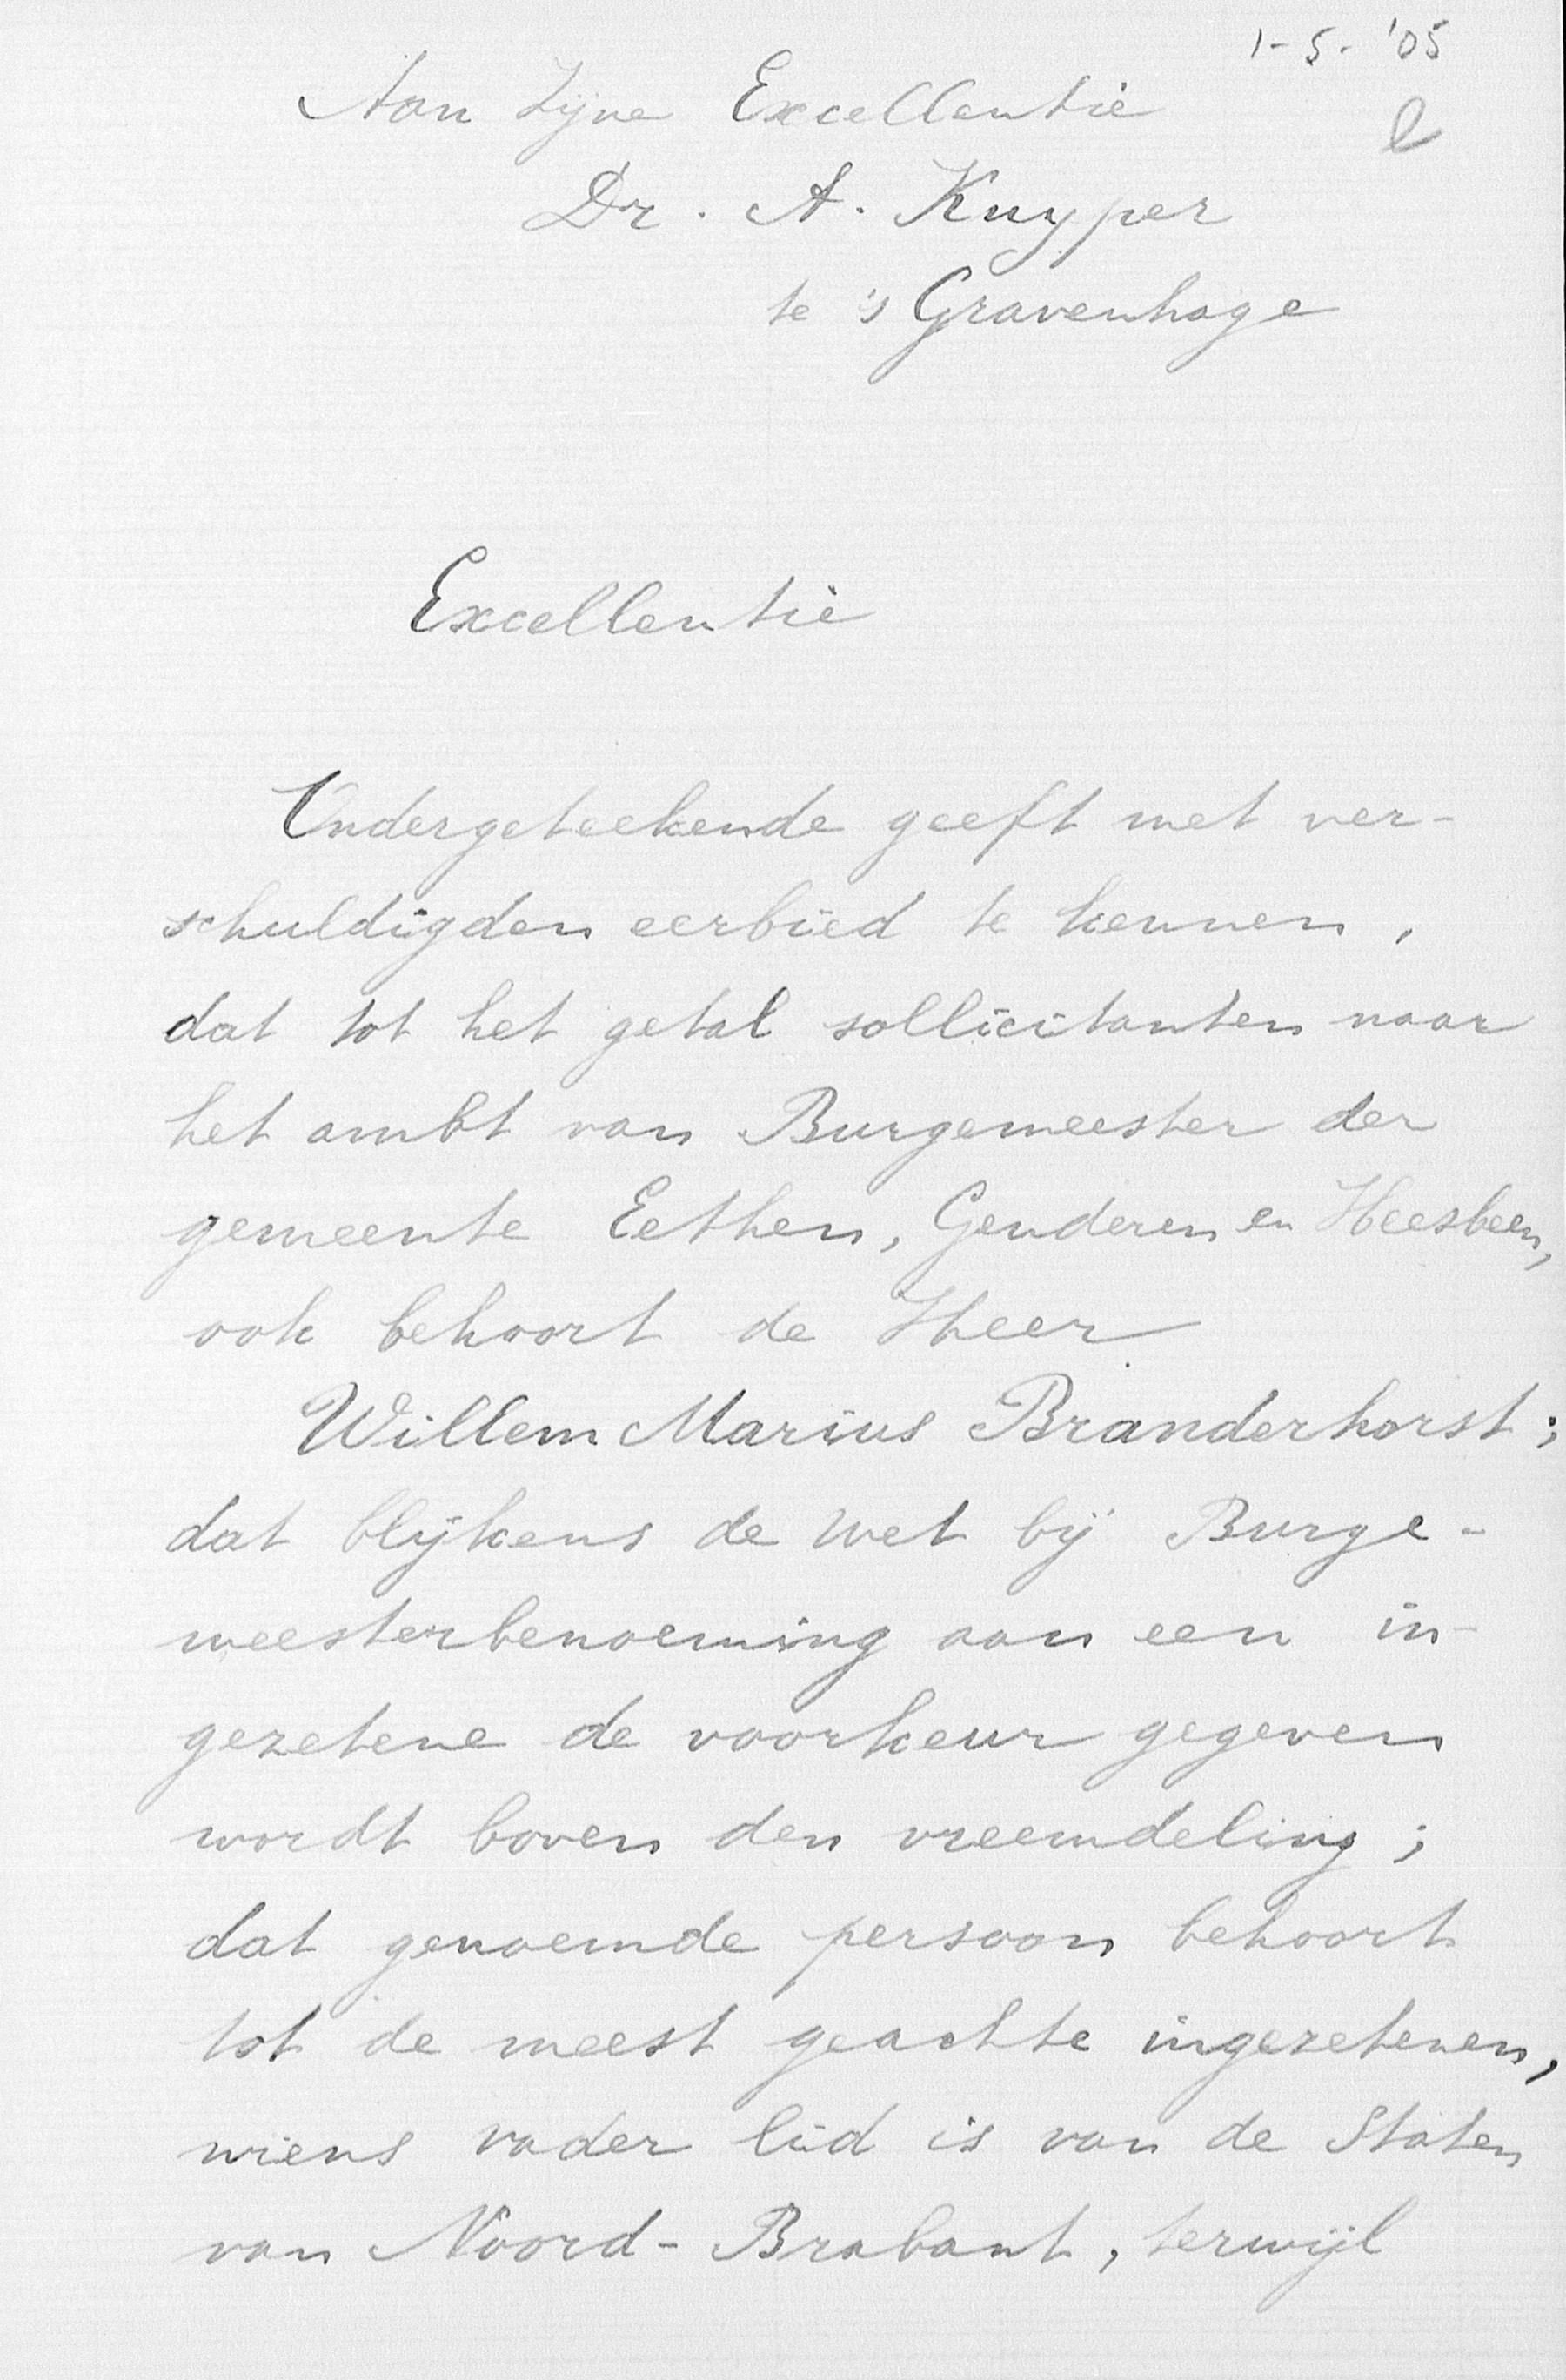 1-5-'05
Aan Zijne Excellentie
Dr. A. Kuyper
te 's Gravenhage
Excellentie
Ondergeteekende geeft met ver-
schuldigden eerbied te kennen,
dat tot het getal sollicitanten naar
het ambt van Burgemeester der
gemeente Eethen, Genderen en Heesbeen,
ook behoort de Heer
Willem Marius Branderhorst;
dat blijkens de wet bij Burge-
meesterbenoeming aan een in-
gezetene de voorkeur gegeven
wordt boven den vreemdeling;
dat genoemde persoon behoort
tot de meest geachte ingezetenen,
wiens vader lid is van de Staten
van Noord-Brabant, terwijl